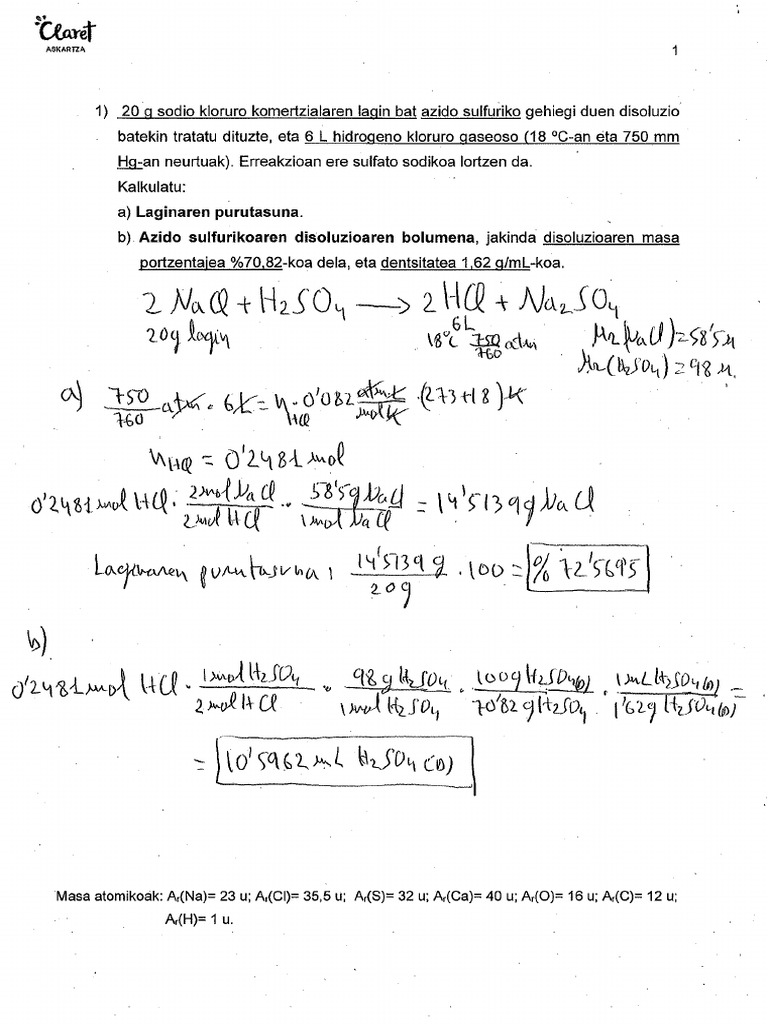 Claret
ASKARTZA
1
1) 20 g sodio kloruro komertzialaren lagin bat azido sulfuriko gehiegi duen disoluzio
batekin tratatu dituzte, eta 6 L hidrogeno kloruro gaseoso (18 ºC-an eta 750 mm
Hg-an neurtuak). Erreakzioan ere sulfato sodikoa lortzen da.
Kalkulatu:
a) Laginaren purutasuna.
b) Azido sulfurikoaren disoluzioaren bolumena, jakinda disoluzioaren masa
portzentajea %70,82-koa dela, eta dentsitatea 1,62 g/mL-koa.
2 NaCl + H2SO4 → 2 HCl + Na2SO4
20g lagin 6L 18°C 750/760 atm Mr(NaCl)=58'5u
Mr(H2SO4)=98u.
a) 750/760 atm · 6L = nHCl · 0'082 atm·L/mol K · (273+18) K
nHCl = 0'2481 mol
0'2481 mol HCl · 2 mol NaCl/2 mol HCl · 58'5g NaCl/1 mol NaCl = 14'5139 g NaCl
Laginaren purutasuna: 14'5139 g/20g · 100 = % 72'5695
b)
0'2481 mol HCl · 1 mol H2SO4/2 mol HCl · 98 g H2SO4/1 mol H2SO4 · 100g H2SO4(D)/70'82 g H2SO4 · 1 mL H2SO4(D)/1'62g H2SO4(D) =
= 10'5962 mL H2SO4(D)
Masa atomikoak: Ar(Na)= 23 u; Ar(Cl)= 35,5 u; Ar(S)= 32 u; Ar(Ca)= 40 u; Ar(O)= 16 u; Ar(C)= 12 u;
Ar(H)= 1 u.